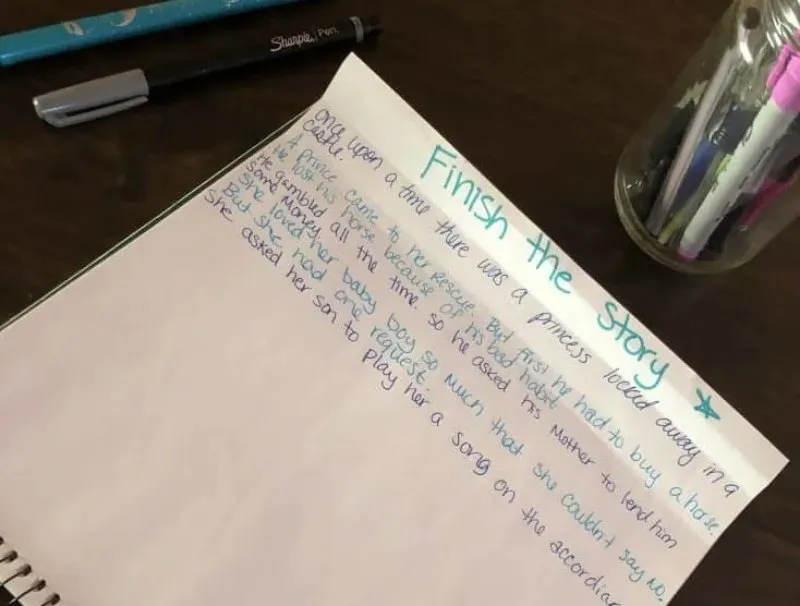 Sharpie Pen.
Finish the story
Once upon a time there was a princess locked away in a
castle.
A prince came to her rescue. But first he had to buy a horse.
He lost his horse because of his bad habit
He gambled all the time. so he asked his Mother to lend him
some money.
She loved her baby boy so much that she couldn't say no.
But she had one request.
She asked her son to play her a song on the accordian